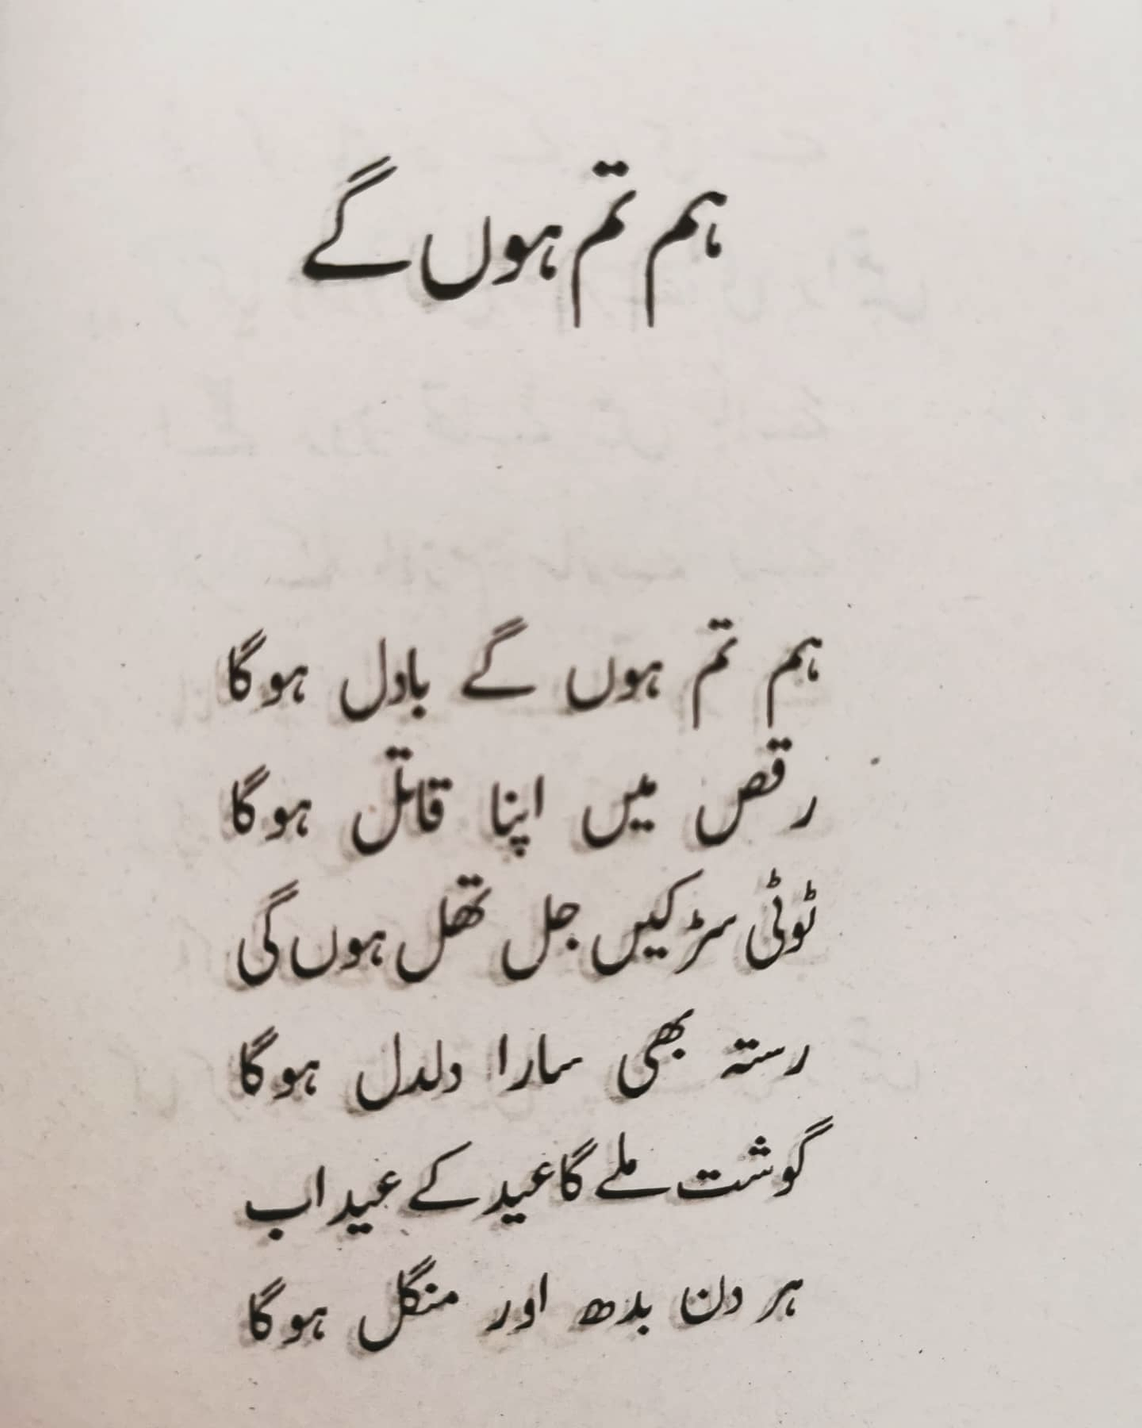 ہم تم ہوں گے
ہم تم ہوں گے بادل ہوگا
رقص میں اپنا قاتل ہوگا
ٹوٹی سڑکیں جل تھل ہوں گی
رستہ بھی سارا دلدل ہوگا
گوشت ملے گا عید کے عید اب
ہر دن بدھ اور منگل ہوگا